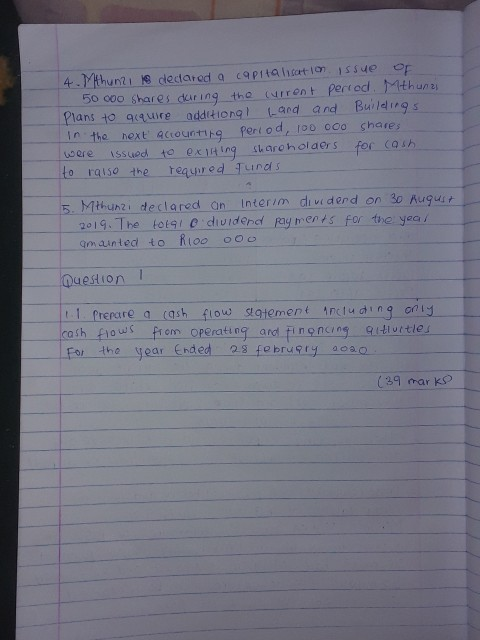 4. Mthunzi declared a capitalisation issue of
50 000 shares during the current period. Mthunzi
Plans to acquire additional Land and Buildings
In the next accounting Period, 100 000 shares
were issued to existing shareholders for cash
to raise the required Funds
5. Mthunzi declared an interim dividend on 30 August
2019. The total dividend payments for the year
amainted to R100 000
Question 1
1.1 Prepare a cash flow statement including only
cash flows from operating and financing activities
For the year Ended 28 february 2020.
(39 marks)